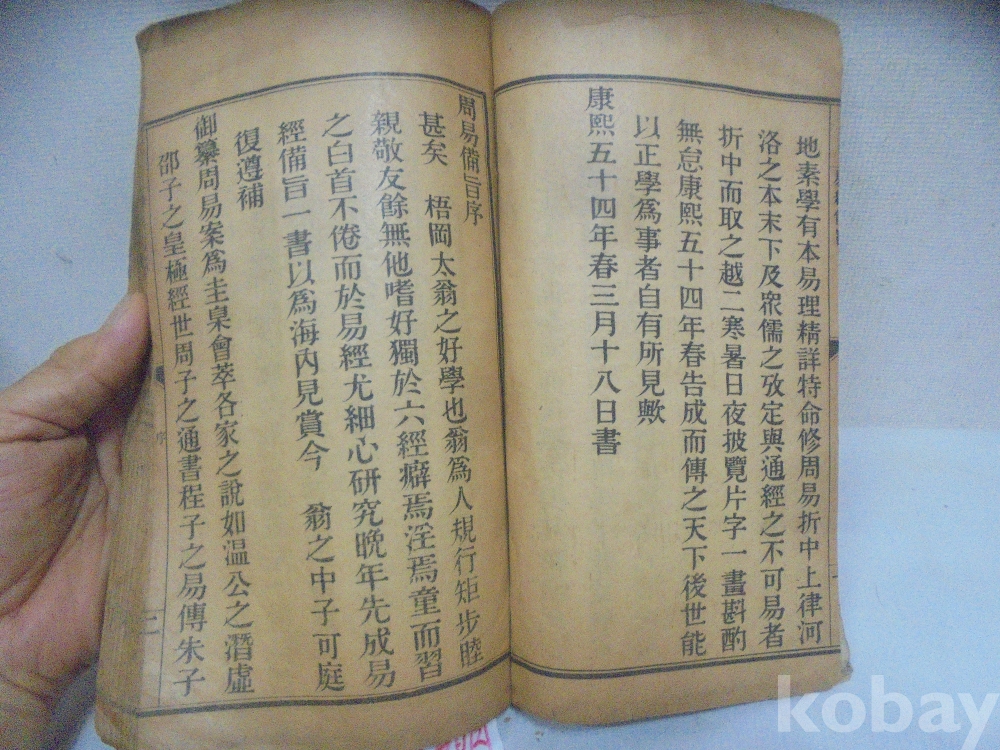 地素學有本易理精詳特命修周易折中上律河
洛之本末下及眾儒之攷定與通經之不可易者
折中而取之越二寒暑日夜披覽片字一畫斟酌
無怠康熙五十四年春告成而傳之天下後世能
以正學爲事者自有所見歟
康熙五十四年春三月十八日書
周易備旨序
甚矣 梧岡太翁之好學也翁爲人規行矩步睦
親敬友餘無他嗜好獨於六經癖焉淫焉童而習
之白首不倦而於易經尤細心研究晚年先成易
經備旨一書以爲海內見賞今 翁之中子可庭
復遵補
御纂周易案爲圭臬會萃各家之說如溫公之潛虛
邵子之皇極經世周子之通書程子之易傳朱子
序
三
kobay